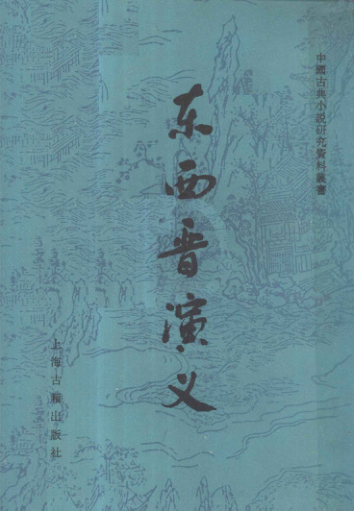 中國古典小說研究資料叢書
东西晋演义
上海古籍出版社